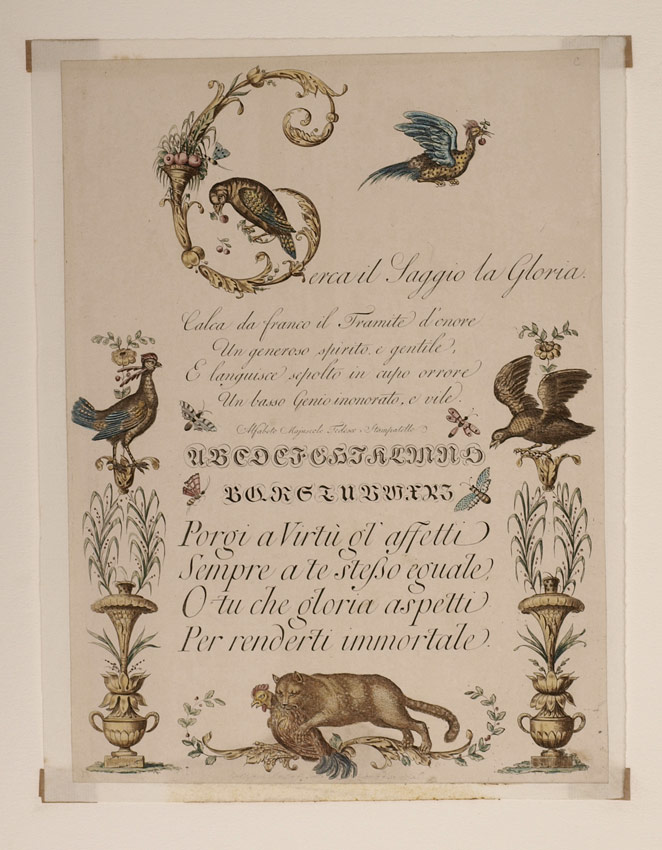 Cerca il Saggio la Gloria.
Calca da franco il Tramite d'onore
Un generoso spirito, e gentile,
E languisce sepolto in cupo orrore
Un basso Genio inonorato, e vile.
Alfabeto Majuscolo Tedesco Stampatello
ABCDEFGHIKLMNO
PQRSTUVWXYZ
Porgi a Virtù gl' affetti
Sempre a te steßo eguale,
O tu che gloria aspetti
Per renderti immortale.